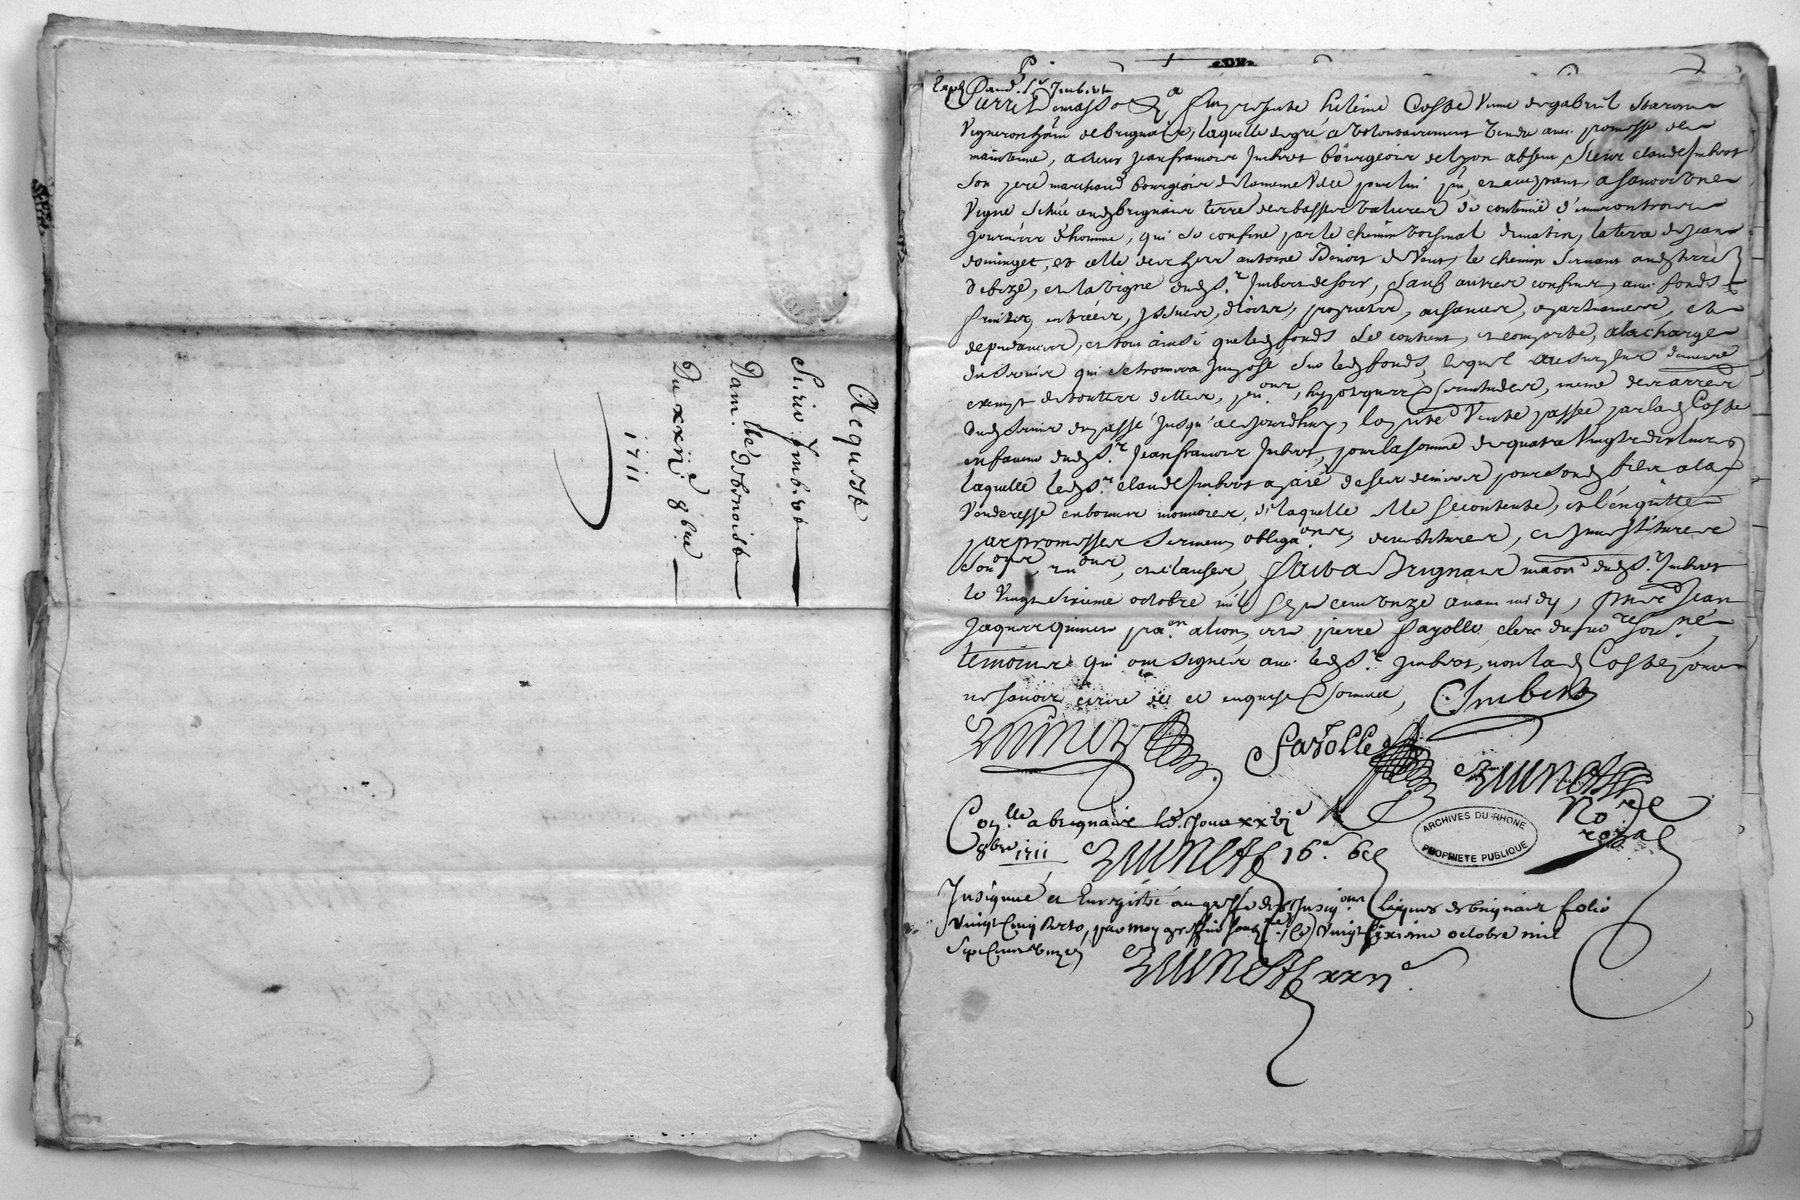 Acquist
Sieur Imbert
Dam.lle
Du xxvie 8bre
1711
Exp. Aud. Sr Imbert
Pardevant fut presente heleine Coste veuve de gabriel
vigneron hant de brignais, laquelle de gré a volontairement vendu avec promesse de
maintenue, a sieur Jean francois Imbert bourgeois de lyon absent, sieur claude Imbert
son pere marchand bourgeois de la meme ville pour lui pnt, et acceptant, a sçavoir une
vigne située aud. brignais terre des basses valures de contenüe d'environ trois
journées d'homme, qui se confine par le chemin de matin, la terre de jean
dominget, et celle des hers antoine Benoit de vent, le chemin servant aux terres
de bize, et la vigne dud. Sr. Imbert de soir, sauf autres confins, avec fonds
fruits, entrées, issües, droits, proprietés, aisances, apartenances, et
dependances, et tout ainsi que led. fonds se contient, et comporte, a la charge
du servis qui se trouvera Imposé sur led. fonds, lequel au surplus demeure
exempt de toutes dettes, pen.ons, hypoteques servitudes, meme des arrerages
dud. servis du passé jusqu'a ce jourdhuy, la pnte vente passée par lad. Coste
en faveur dud. Sr. Jean francois Imbert, pour la somme de quatre vingts dix livres
laquelle led. Sr. claude Imbert a paié de ses deniers pour sond. fils a la
venderesse en bonnes monnoies, de laquelle elle se contente, et l'en quitte
par promesses serment obliga.ons, devestitures, et Investitures
soûons, renons, et clauses, fait a Brignais maison dud. Sr. Imbert
le vingt sixieme octobre mil sept cent onze avant midy, pnts Jean
Jaques quinet pra.en a lion, et pierre fayolle clerc du nore soussigné
temoins qui ont signés avec led. Sr. Imbert, non lad. Coste pour
ne sçavoir ecrire de ce enquise sommée, CImbert
fayolle
Brunet
nore
royal
Con.lle a brignais led. jour xxvie
8bre 1711 Brunet 16s. 6d
ARCHIVES DU RHONE
PROPRIETE PUBLIQUE
Insinué et Enregistré au greffe des Insig.ons laiques de brignais folio
vingt cinq verso, par moy greffier souss.né Ce vingt sixieme octobre mil
sept cent onze
Brunet